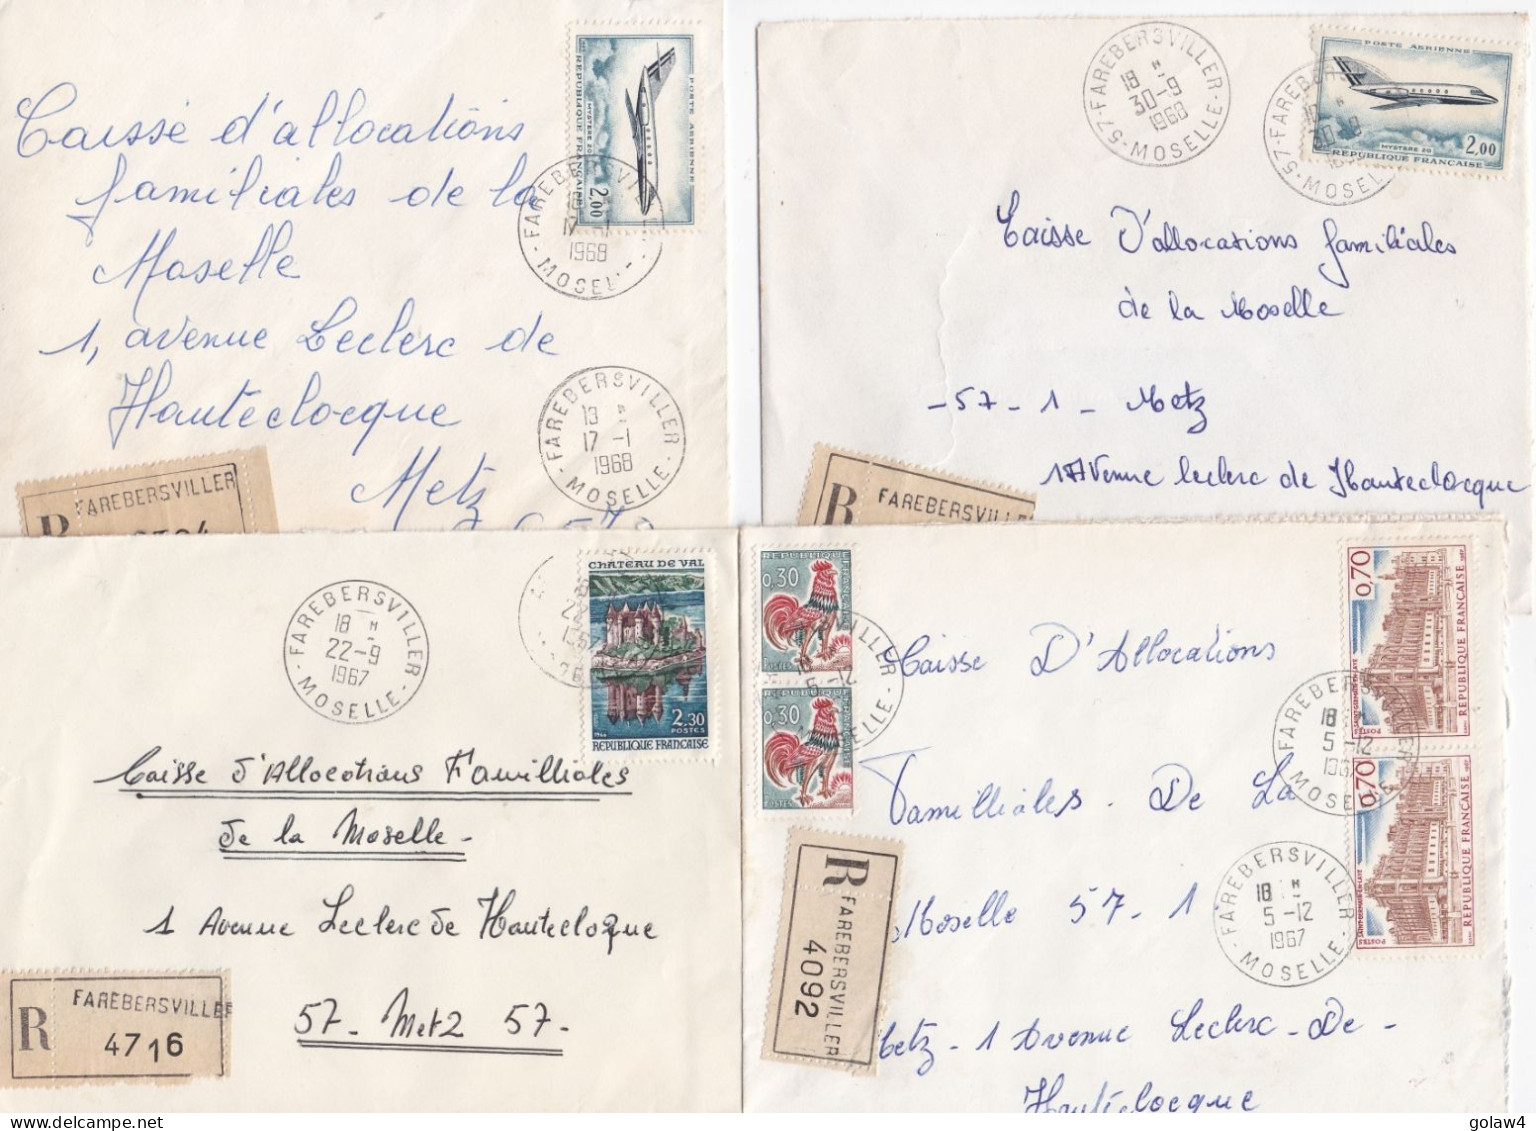 Caisse d'allocations
familiales de la
Moselle
1, avenue Leclerc de
Hauteclocque
Metz
POSTE AERIENNE
MYSTERE 20
REPUBLIQUE FRANÇAISE
2,00
FAREBERSVILLER
1968
MOSELLE
FAREBERSVILLER
18 H
17 -1
1968
MOSELLE
R
FAREBERSVILLER
57·FAREBERSVILLER
18 H
30-9
1968
MOSELLE
57·FAREBERS
30-9
MOSE
POSTE AERIENNE
2,00
MYSTERE 20
REPUBLIQUE FRANÇAISE
Caisse d'allocations familiales
de la Moselle
-57-1- Metz
1 Avenue leclerc de Hauteclocque
R
FAREBERSVILLER
FAREBERSVILLER
18 H
22-9
1967
MOSELLE
CHATEAU DE VAL
2,30
POSTES
1966
REPUBLIQUE FRANÇAISE
Caisse d'Allocations Familliales
de la Moselle-
1 Avenue Leclerc de Hauteclocque
57- Metz 57-
R
FAREBERSVILLER
4716
REPUBLIQUE FRANÇAISE
0,30
POSTES
REPUBLIQUE FRANÇAISE
0,30
POSTES
5-12
Caisse D'Allocations
Familliales - De La
Moselle 57-1
Metz - 1 Avenue Leclerc - De -
Hauteclocque
R
FAREBERSVILLER
4092
0,70
SAINT-GERMAIN-EN-LAYE
POSTES
REPUBLIQUE FRANÇAISE
1967
0,70
SAINT-GERMAIN-EN-LAYE
POSTES
REPUBLIQUE FRANÇAISE
1967
FAREBERSVILLER
18
5-12
1967
MOSELLE
FAREBERSVILLER
18 H
5-12
1967
MOSELLE
golaw4